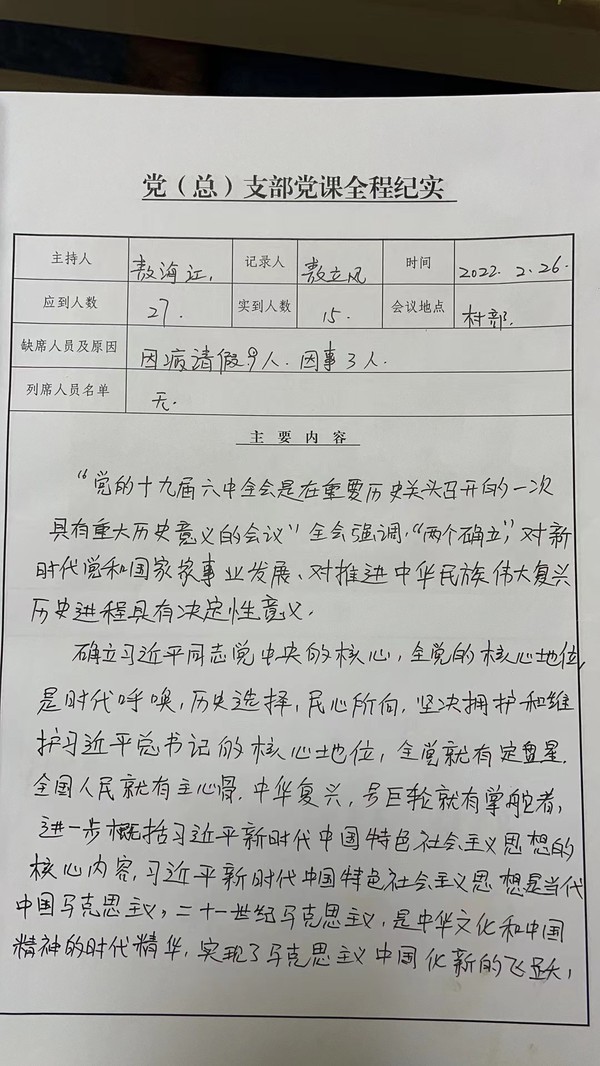 党（总）支部党课全程纪实
主持人 敖海江. 记录人 敖立风 时间 2022. 2. 26.
应到人数 27. 实到人数 15. 会议地点 村部.
缺席人员及原因 因病请假9人. 因事3人.
列席人员名单 无.
主要内容
“党的十九届六中全会是在重要历史关头召开的一次
具有重大历史意义的会议”全会强调,“两个确立”,对新
时代党和国家家事业发展、对推进中华民族伟大复兴
历史进程具有决定性意义.
确立习近平同志党中央的核心,全党的核心地位,
是时代呼唤,历史选择,民心所向,坚决拥护和维
护习近平总书记的核心地位,全党就有定盘星.
全国人民就有主心骨.中华复兴,号巨轮就有掌舵者,
进一步概括习近平新时代中国特色社会主义思想的
核心内容,习近平新时代中国特色社会主义思想是当代
中国马克思主义,二十一世纪马克思主义,是中华文化和中国
精神的时代精华,实现了马克思主义中国化新的飞跃,